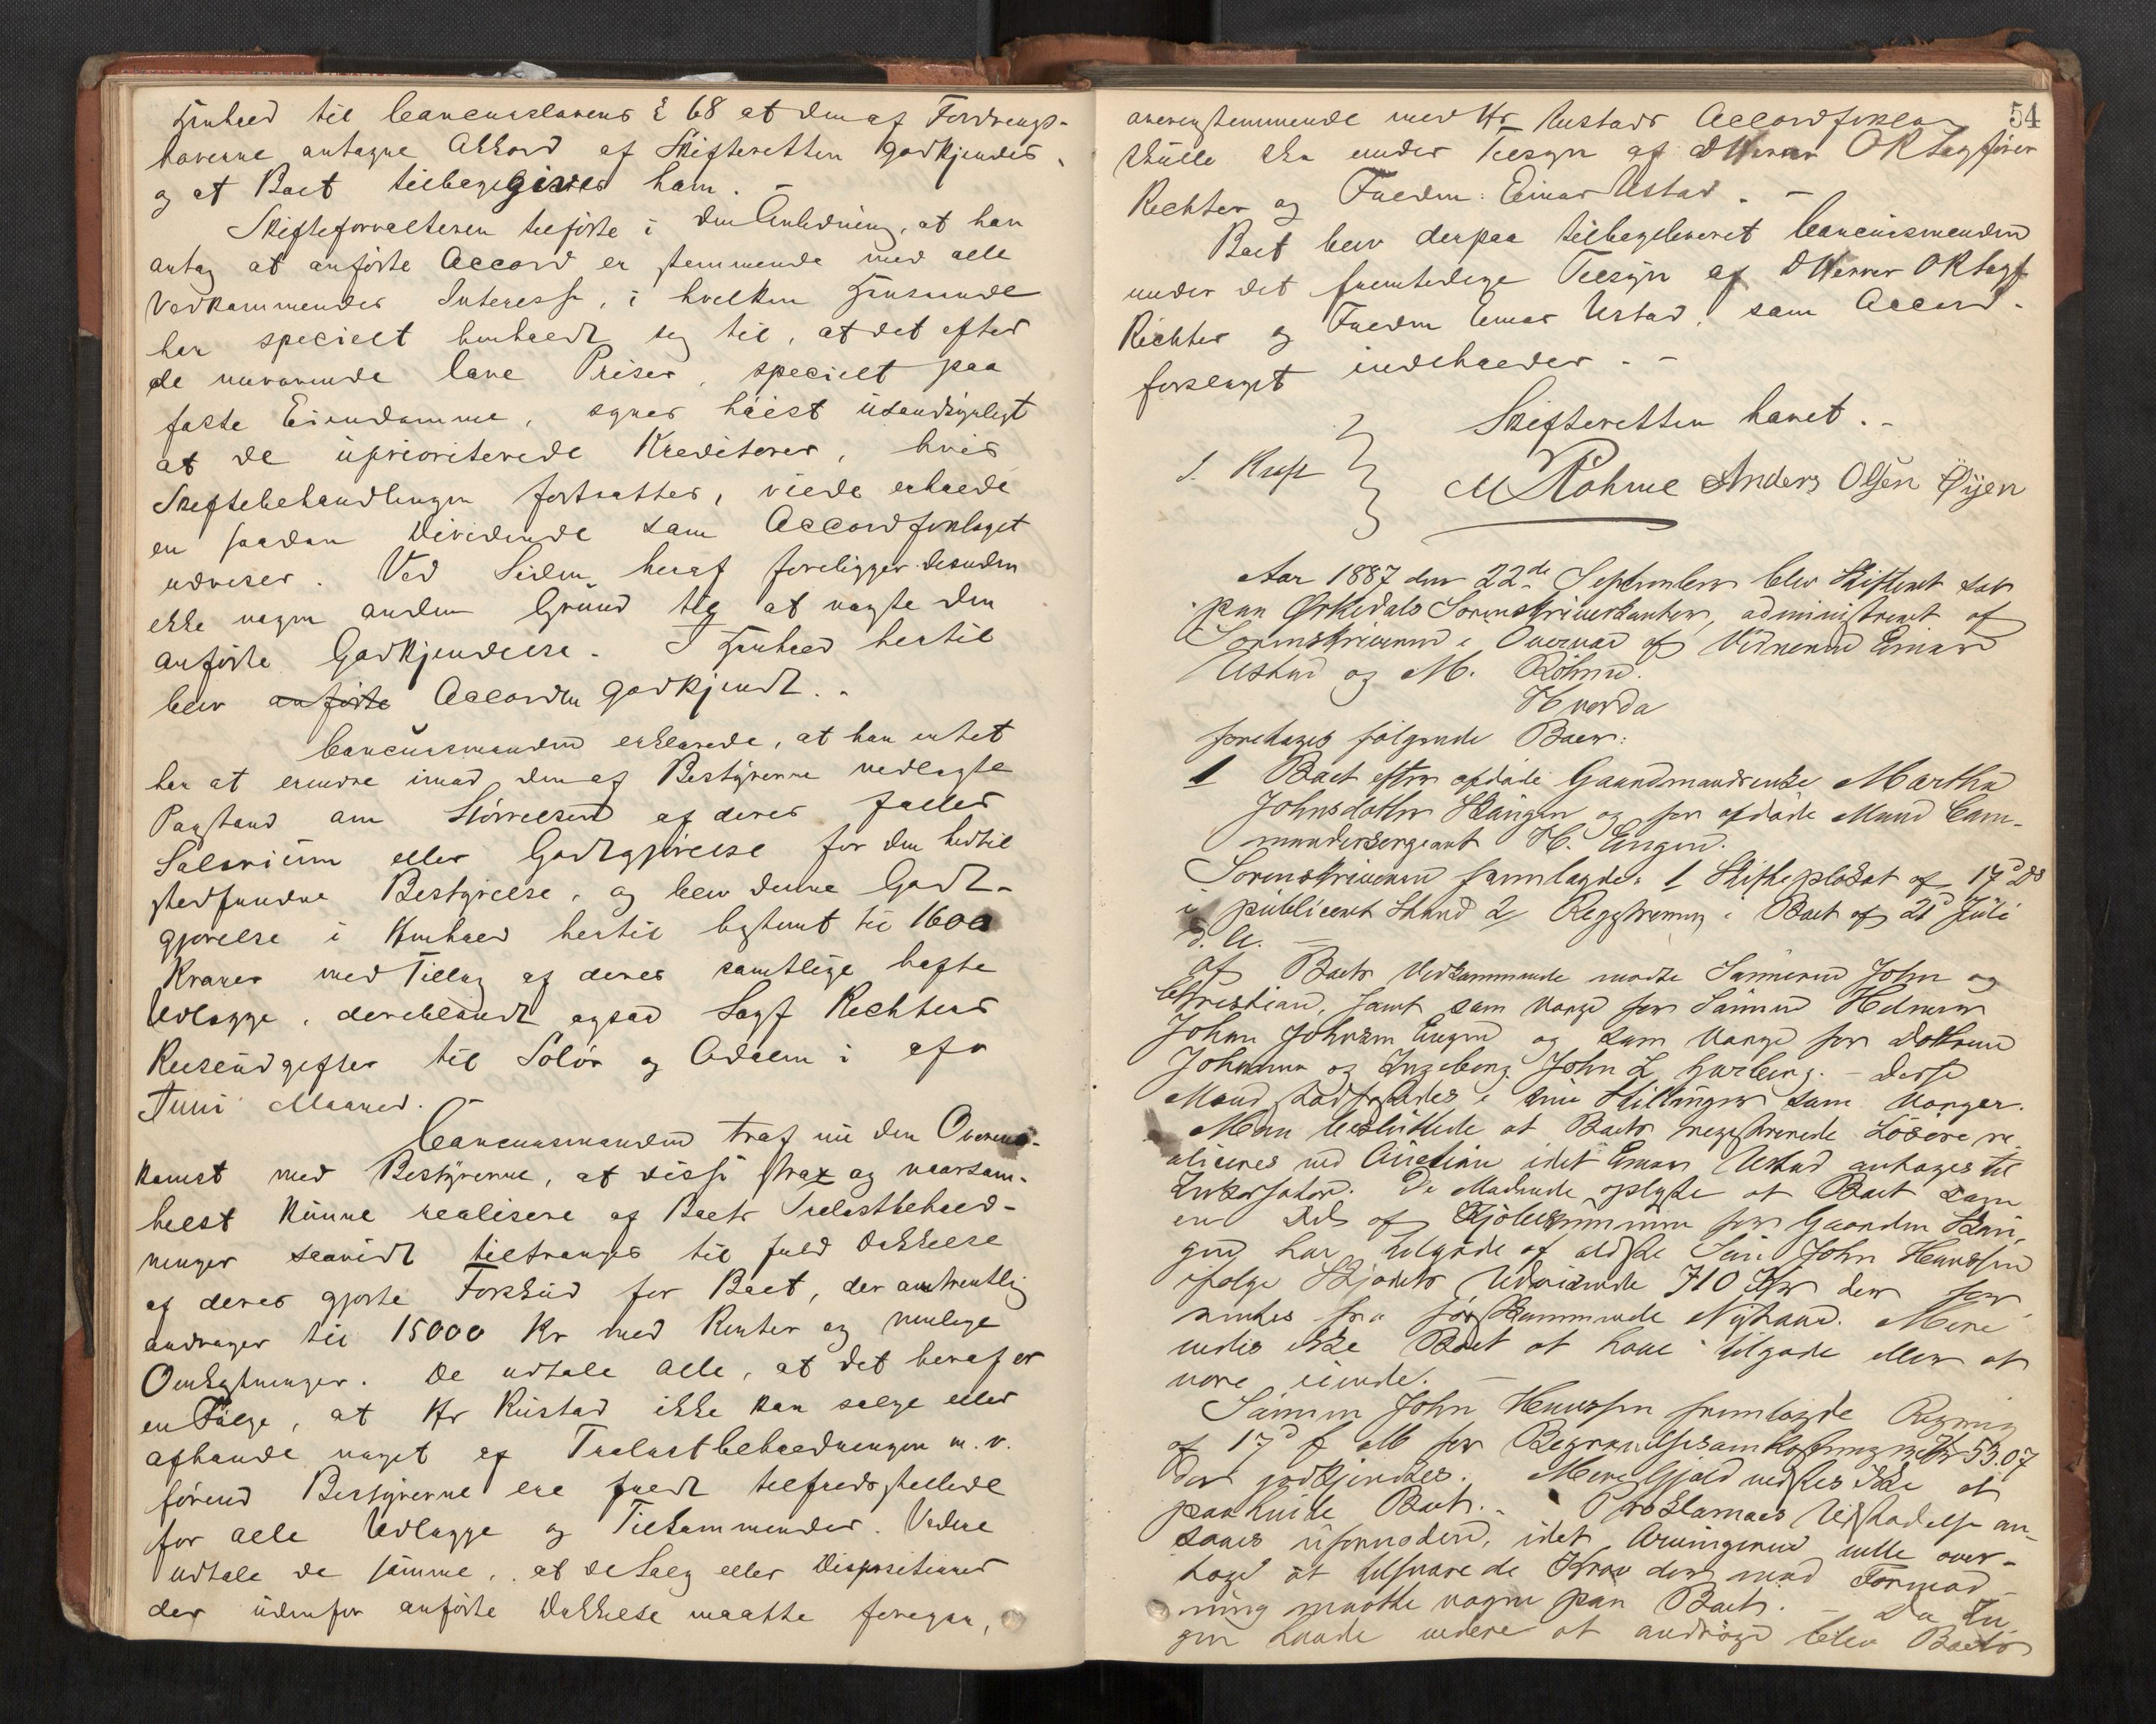 Henhold til Concurslovens § 68 at den af Fordrings-
haverne antagne Akkord af Skifteretten godkjendes,
og at Boet tilbagegives ham. -
Skifteforvalteren tilførte i den Anledning, at han
antog at anførte Accord er stemmende med alle
Vedkommendes Interesse, i hvilken Henseende
han specielt henholdt sig til, at det efter
de nuværende lave Priser, specielt paa
faste Eiendomme, synes høist usandsynligt
at de uprioriterede Kreditorer, hvis
Skiftebehandlingen fortsattes, vilde erholde
en saadan Dividende som Accordforslaget
udviser. Ved Siden heraf foreligger desuden
ikke nogen anden Grund til at nægte den
anførte Godkjendelse. I Henhold hertil
blev anførte Accorden godkjendt. -
Concursmanden erklærede, at han intet
har at erindre imod den af Bestyrerne nedlagte
Paastand om Størrelsen af deres fælles
Salærium eller Godtgjørelse for den hidtil
stedfundne Bestyrelse, og blev denne Godt-
gjørelse i Henhold hertil bestemt til 1600
Kroner med Tillæg af deres samtlige hafte
Udlægge, deriblandt ogsaa Sagf Richters
Reiseudgifter til Solør og Odalen i
Juni Maaned. -
Concursmanden traf nu den Overens-
komst med Bestyrerne, at disse strax og naarsom-
helst kunne realisere af Boets Trælastbehold-
ninger saavidt tiltrænges til fuld Dækkelse
af deres gjorte Forskud for Boet, der omtrentlig
andrager til 15000 Kr med Renter og mulige
Omkostninger. De udtale alle, at det heraf er
en Følge, at Hr Rustad ikke kan sælge eller
afhænde noget af Trælastbeholdningen m. v.
førend Bestyrerne ere fuldt tilfredsstillede
for alle Udlægge og Tilkommender. Videre
udtale de samme, at de Salg eller Dispositioner
der udenfor anførte Dækkelse maatte foregaa,
54
overensstemmende med Hr Rustads Accordforslag
skulle ske under Tilsyn af DHerrer ORSagfører
Richter og Fuldm: Einar Ustad. -
Boet blev derpaa tilbageleveret Concursmanden
under det fremtidige Tilsyn af DHerrer ORSagf
Richter og Fuldm Einar Ustad, som Accord-
forslaget indeholder. -
Skifteretten hævet. -
M Rohme Anders Olsen Øyen
Aar 1887 den 22de September blev Skifteret sat
paa Ørkedals Sorenskriverkontor, administreret af
Sorenskriveren i Overvær af Vidnerne Einar
Ustad og M. Röhme.
Hvorda
foretages følgende Boer:
1 Boet efter afdøde Gaardmandsenke Martha
Johnsdatter Skangen og før afdøde Mand Com-
mandersergeant H. Engen.
Sorenskriveren fremlagde: 1 Skifteplakat af 17 Ds
i publiceret Stand 2/ Registrering i Boet af 21 Juli
d. A. -
Af Boets Vedkommende mødte Sønnerne John og
Christian, samt som Værge for Sønnen
Johan Johnsen Engen og som Værge for Døttrene
Johanna og Ingeborg John L Garberg. - Disse
Mænd stadfæstedes i sine Stillinger som Værger.
Man besluttede at Boets registrerede Løsøre re-
aliseres ved Auction idet Einar Ustad antages til
Inkassator. De Mødende oplyste at Boet som
en Del af Kjøbesummen for Gaarden Skan-
gen har tilgode af ældste Søn John Hansen
ifølge Skjødets Udvisende 710 Kr der
Mere
vides ikke Boet at have tilgode eller at
være eiende. -
Sønnen John Hansen fremlagde Regning
af 17 f M for Begravelsesomkostninger Kr 53.07
der godkjendtes. Mere Gjæld vidstes ikke at
paahvile Boet. - Proklamas Udstedelse an-
saaes ufornøden, idet Arvingerne ville over-
tage at tilsvare de Krav der mod Formod-
ning maatte være paa Boet. - Da In-
gen havde videre at andrage blev Boets